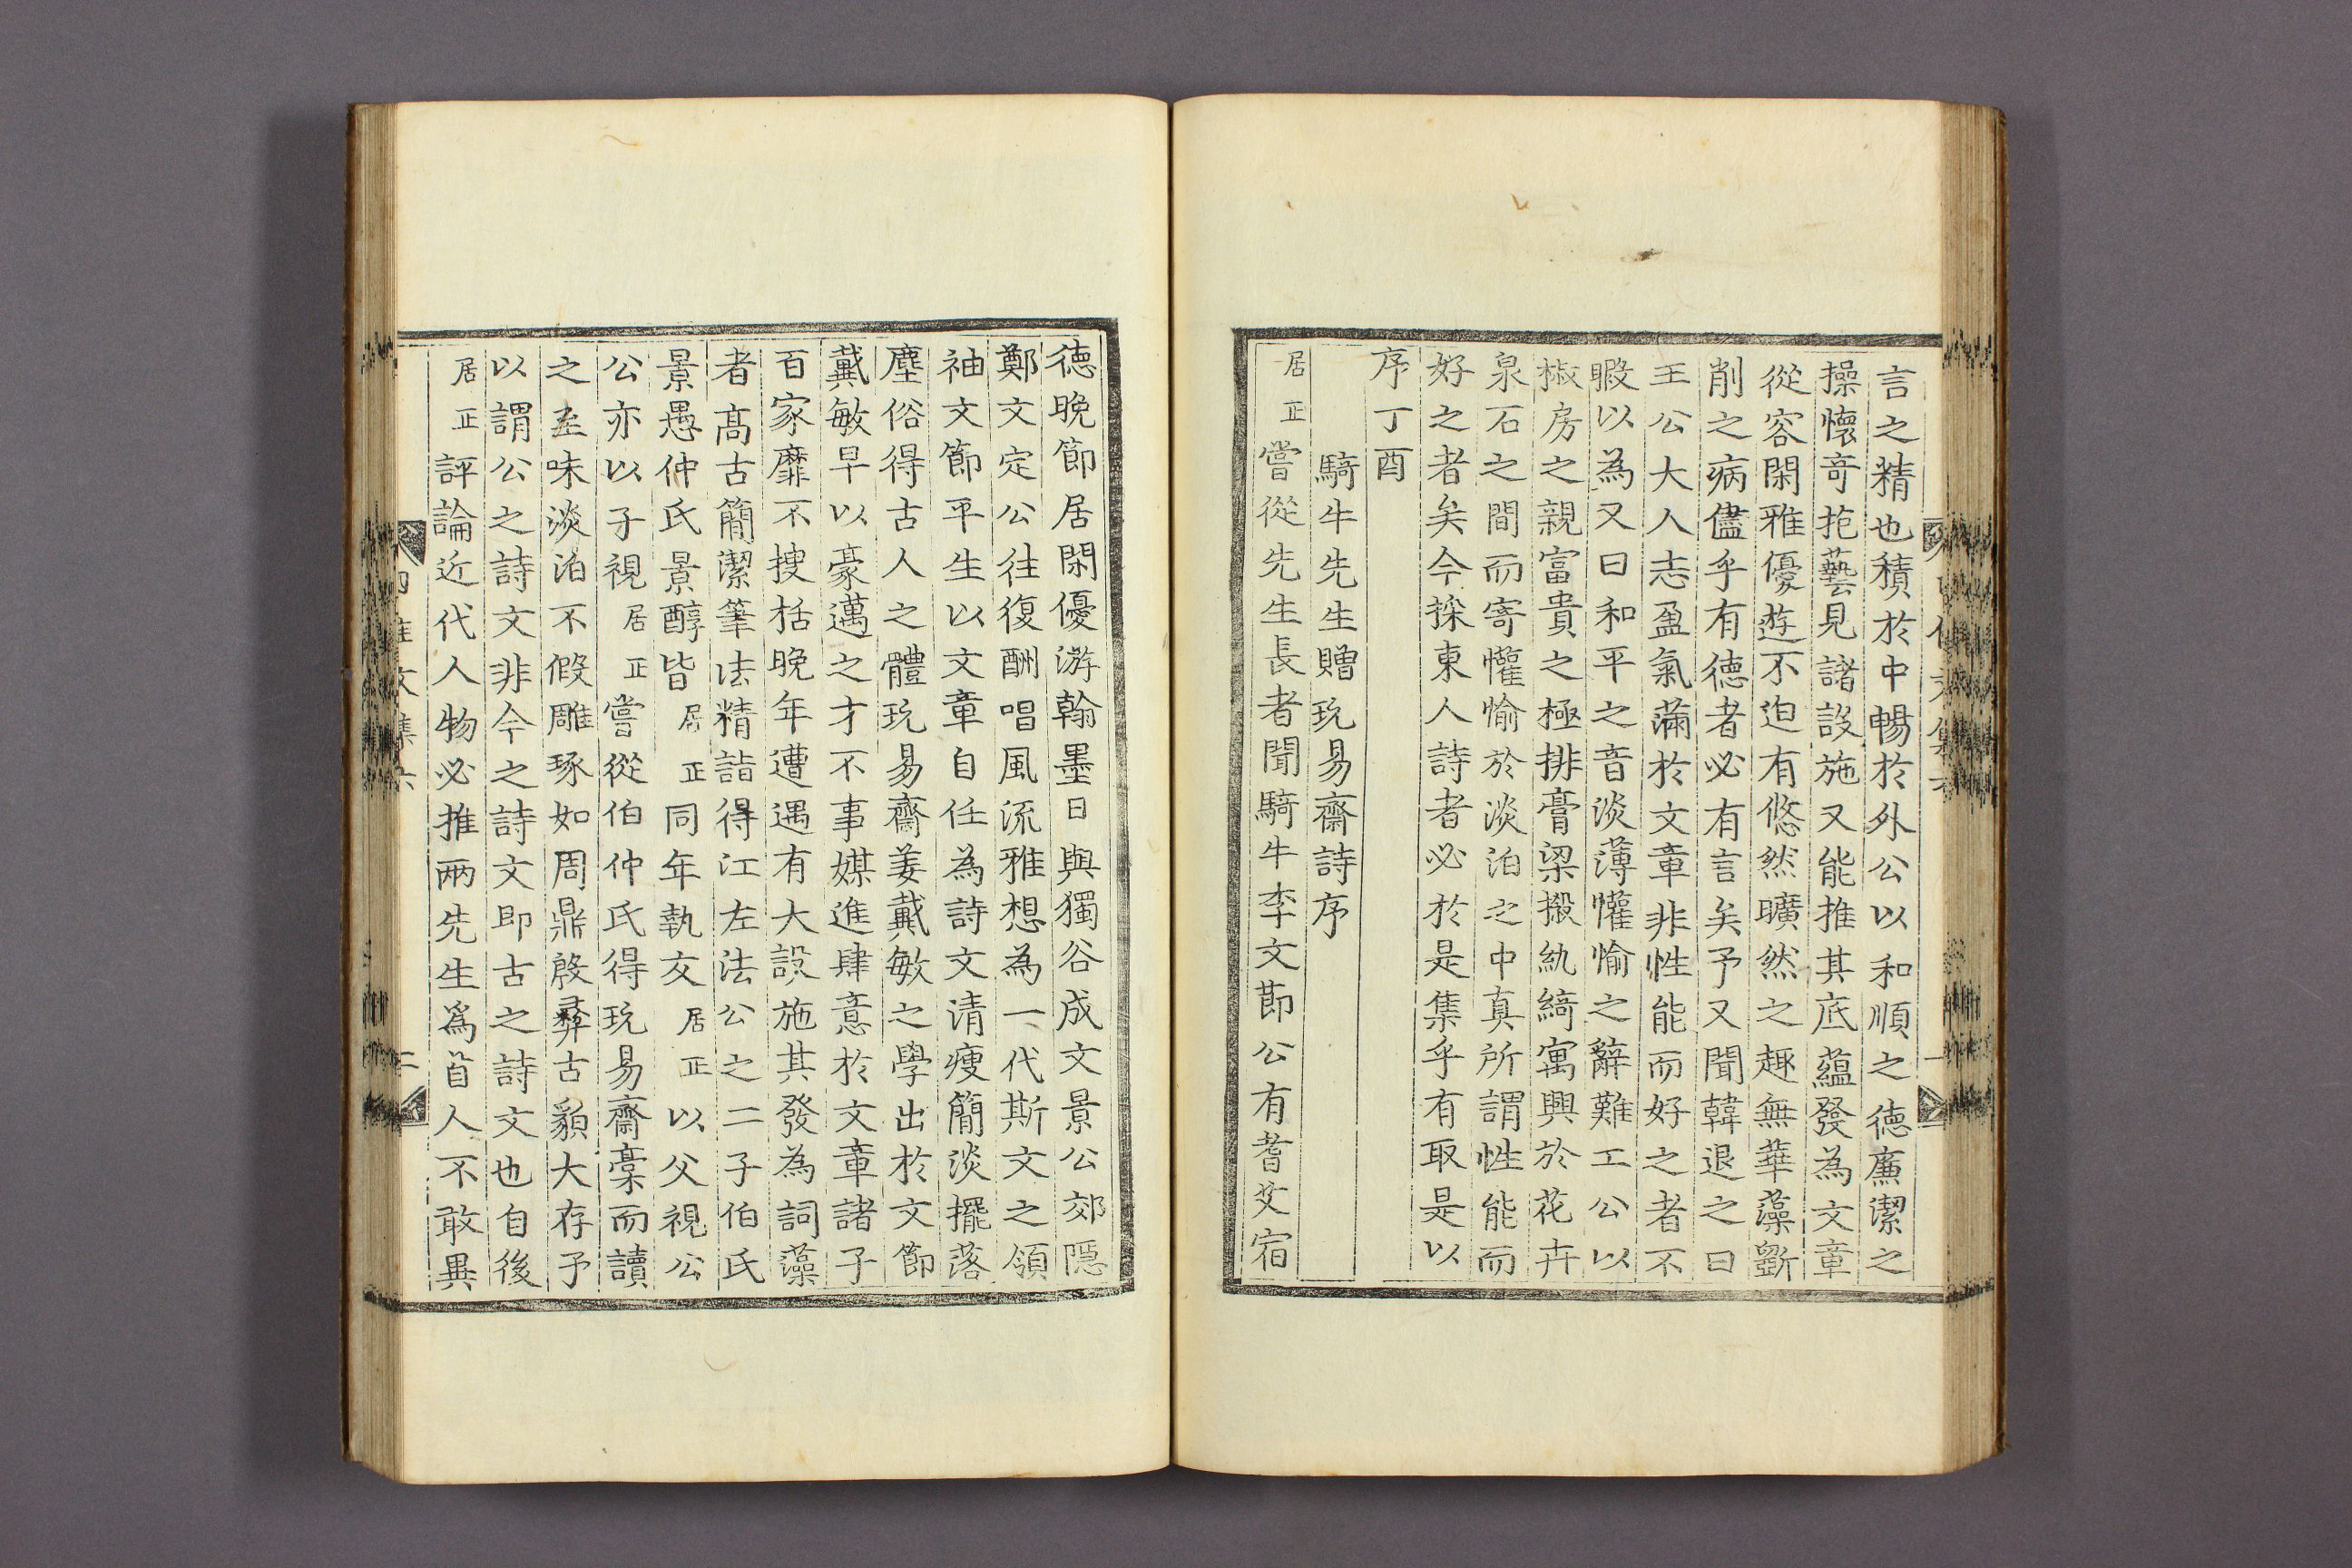 言之精也積於中暢於外公以和順之德廉潔之
操懷奇抱藝見諸設施又能推其底蘊發為文章
從容閑雅優遊不迫有悠然曠然之趣無華藻斵
削之病儘乎有德者必有言矣予又聞韓退之曰
王公大人志盈氣滿於文章非性能而好之者不
暇以為又曰和平之音淡薄懽愉之辭難工公以
椒房之親富貴之極排膏梁搬紈綺寓興於花卉
泉石之間而寄懽愉於淡泊之中真所謂性能而
好之者矣今採東人詩者必於是集乎有取是以
序丁酉
騎牛先生贈玩易齋詩序
居正嘗從先生長者聞騎牛李文節公有耆艾宿
德晚節居閑優游翰墨日與獨谷成文景公郊隱
鄭文定公往復酬唱風流雅想為一代斯文之領
袖文節平生以文章自任為詩文清瘦簡淡擺落
塵俗得古人之體玩易齋姜戴敏之學出於文節
戴敏早以豪邁之才不事媒進肆意於文章諸子
百家靡不搜栝晚年遭遇有大設施其發為詞藻
者高古簡潔筆法精詣得江左法公之二子伯氏
景愚仲氏景醇皆居正同年執友居正以父視公
公亦以子視居正嘗從伯仲氏得玩易齋稾而讀
之至味淡泊不假雕琢如周鼎殷彝古貌大存予
以謂公之詩文非今之詩文即古之詩文也自後
居正評論近代人物必推兩先生爲首人不敢異